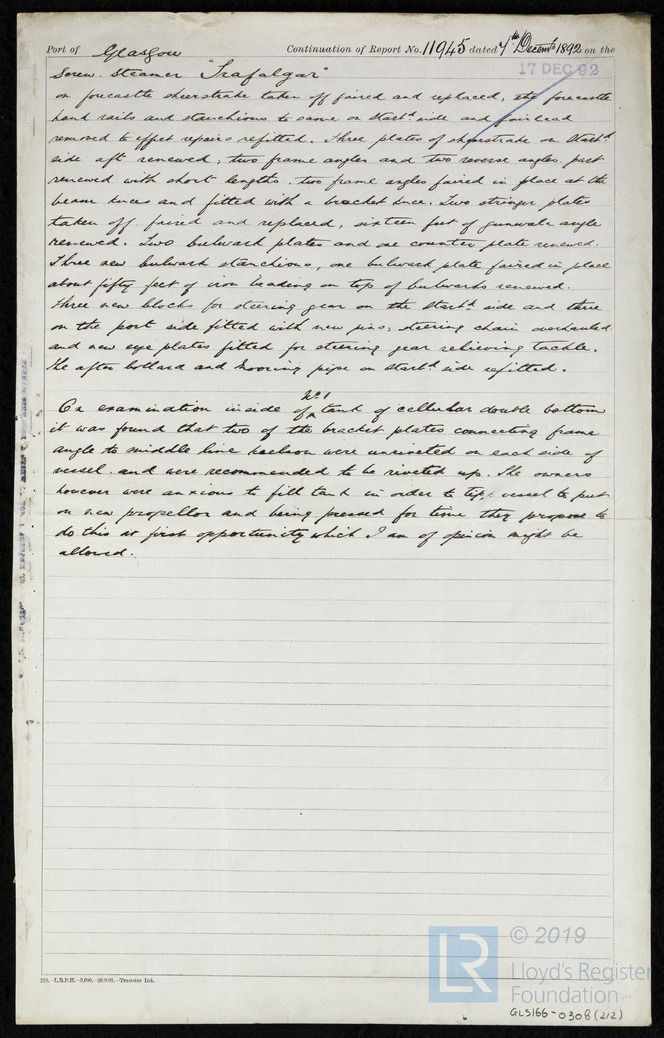 Port of Glasgow Continuation of Report No. 11945 dated 7th Decemr 1892 on the
17 DEC 92
Screw Steamer "Trafalgar"
on forecastle sheerstrake taken off faired and replaced, the forecastle
hand rails and stanchions to same on Starbd side and fairlead
removed to effect repairs refitted. Three plates of sheerstrake on Starbd
side aft renewed; two frame angles and two reverse angles part
renewed with short lengths. two frame angles faired in place at the
beam knees and fitted with a bracket knee. Two stringer plates
taken off faired and replaced, sixteen feet of gunwale angle
renewed. Two bulwark plates and one counter plate renewed.
Three new bulwark stanchions, one bulwark plate faired in place
about fifty feet of iron beading on top of bulwarks renewed.
Three new blocks for steering gear on the Starbd side and three
on the port side fitted with new pins; steering chain overhauled
and new eye plates fitted for steering gear relieving tackle.
The after bollard and Mooring pipe on Starbd side refitted.
On examination inside of No. 1 tank of cellular double bottom
it was found that two of the bracket plates connecting frame
angle to middle line keelson were unriveted on each side of
vessel. and were recommended to be riveted up. The owners
however were anxious to fill tank in order to tip vessel to put
on new propellor and being pressed for time they propose to
do this at first opportunity which I am of opinion might be
allowed.
210.—L.R.P.H.—5,000.—Transfer Ink.
LR © 2019
Lloyd's Register
Foundation
GLS166-0308 (2/2)